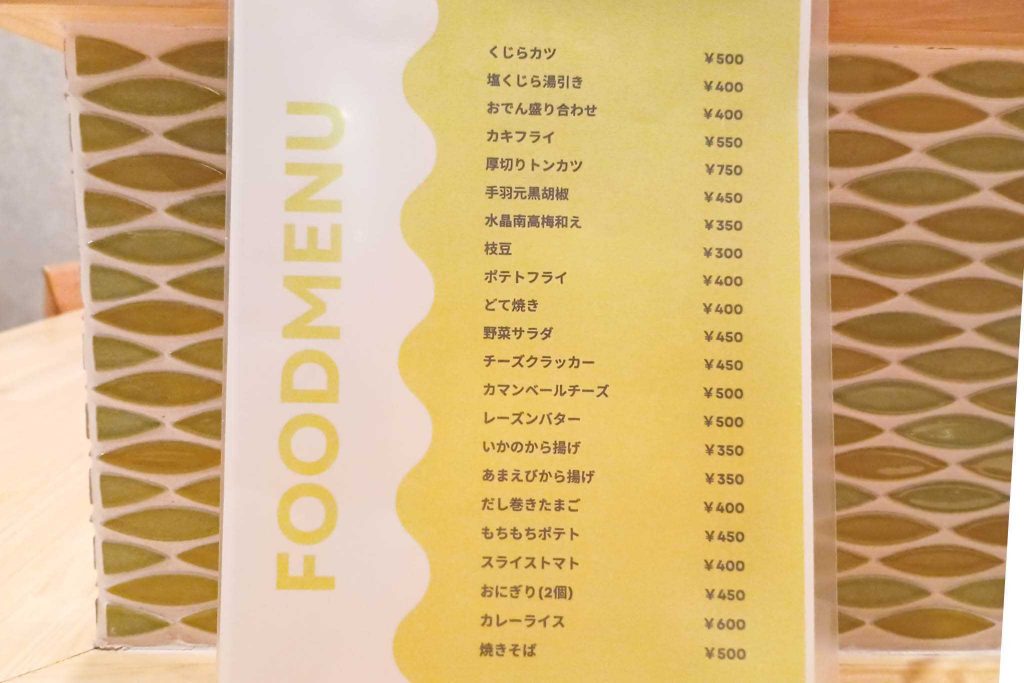 FOODMENU
くじらカツ ¥500
塩くじら湯引き ¥400
おでん盛り合わせ ¥400
カキフライ ¥550
厚切りトンカツ ¥750
手羽元黒胡椒 ¥450
水晶南高梅和え ¥350
枝豆 ¥300
ポテトフライ ¥400
どて焼き ¥400
野菜サラダ ¥450
チーズクラッカー ¥450
カマンベールチーズ ¥500
レーズンバター ¥500
いかのから揚げ ¥350
あまえびから揚げ ¥350
だし巻きたまご ¥400
もちもちポテト ¥450
スライストマト ¥400
おにぎり(2個) ¥450
カレーライス ¥600
焼きそば ¥500